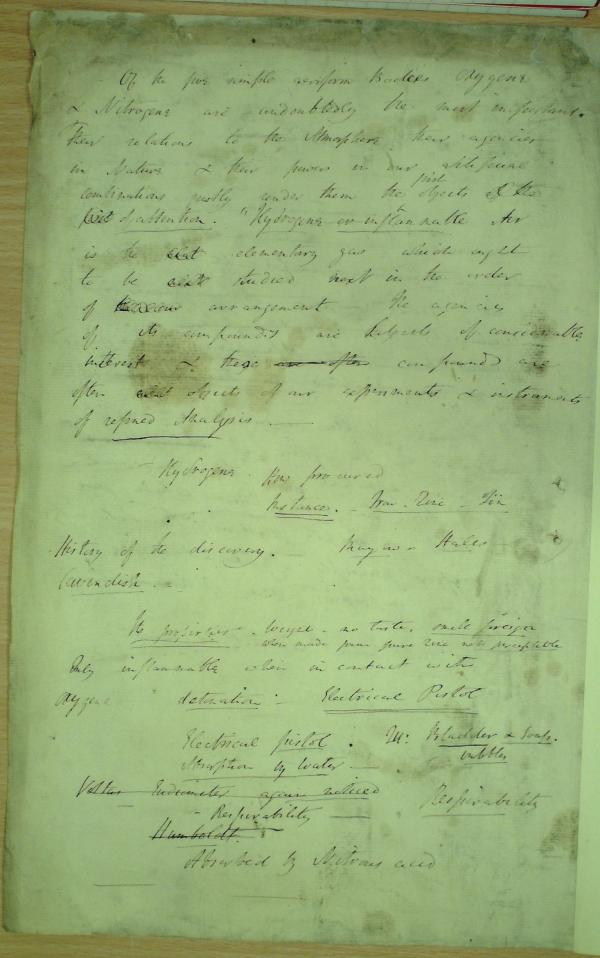 Of the five simple aeriform Bodies Oxygene
& Nitrogene are undoubtedly the most important.
Their relations to the Atmosphere, their agencies
in Nature & their powers in our artificial
first
combinations justly render them the objects of the
first of attention. "Hydrogene or inflammable Air
is the elementary gas which ought
to be studied next in the order
of our arrangement The agencies
of its compounds are subjects of considerable
interest & these are often compounds are
often objects of our experiments & instruments
of refined Analysis. —
Hydrogene. How procured
Instances. - Iron - Zinc - Tin
History of the discovery. — Mayow - Hales -
Cavendish -
Its properties - Weight - no taste, smell foreign
when made from pure Zinc not perceptible
Only inflammable when in contact with
Oxygene detonation - Electrical Pistol
Electrical pistol. Bladder & Soap.
bubbles
Absorption by Water —
Voltas Eudiometer again noticed Respirability
- Respirability —
Humboldt.
Absorbed by Nitrous acid